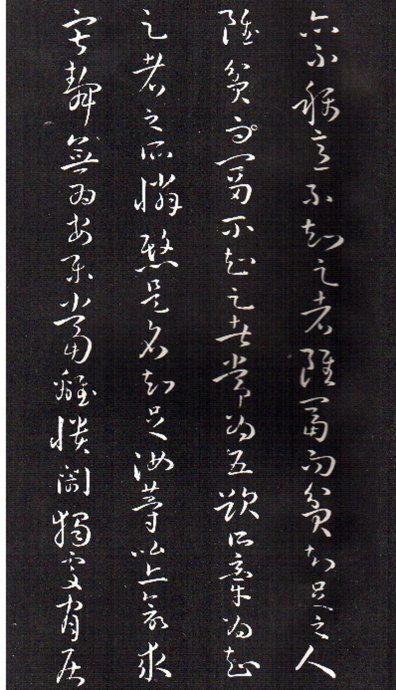 亦不稱意不知足者雖富而貧知足之人
雖貧而富不知足者常為五欲所牽為知
足者之所憐愍是名知足汝等比丘欲求
寂靜無為安樂當離憒鬧獨處閑居